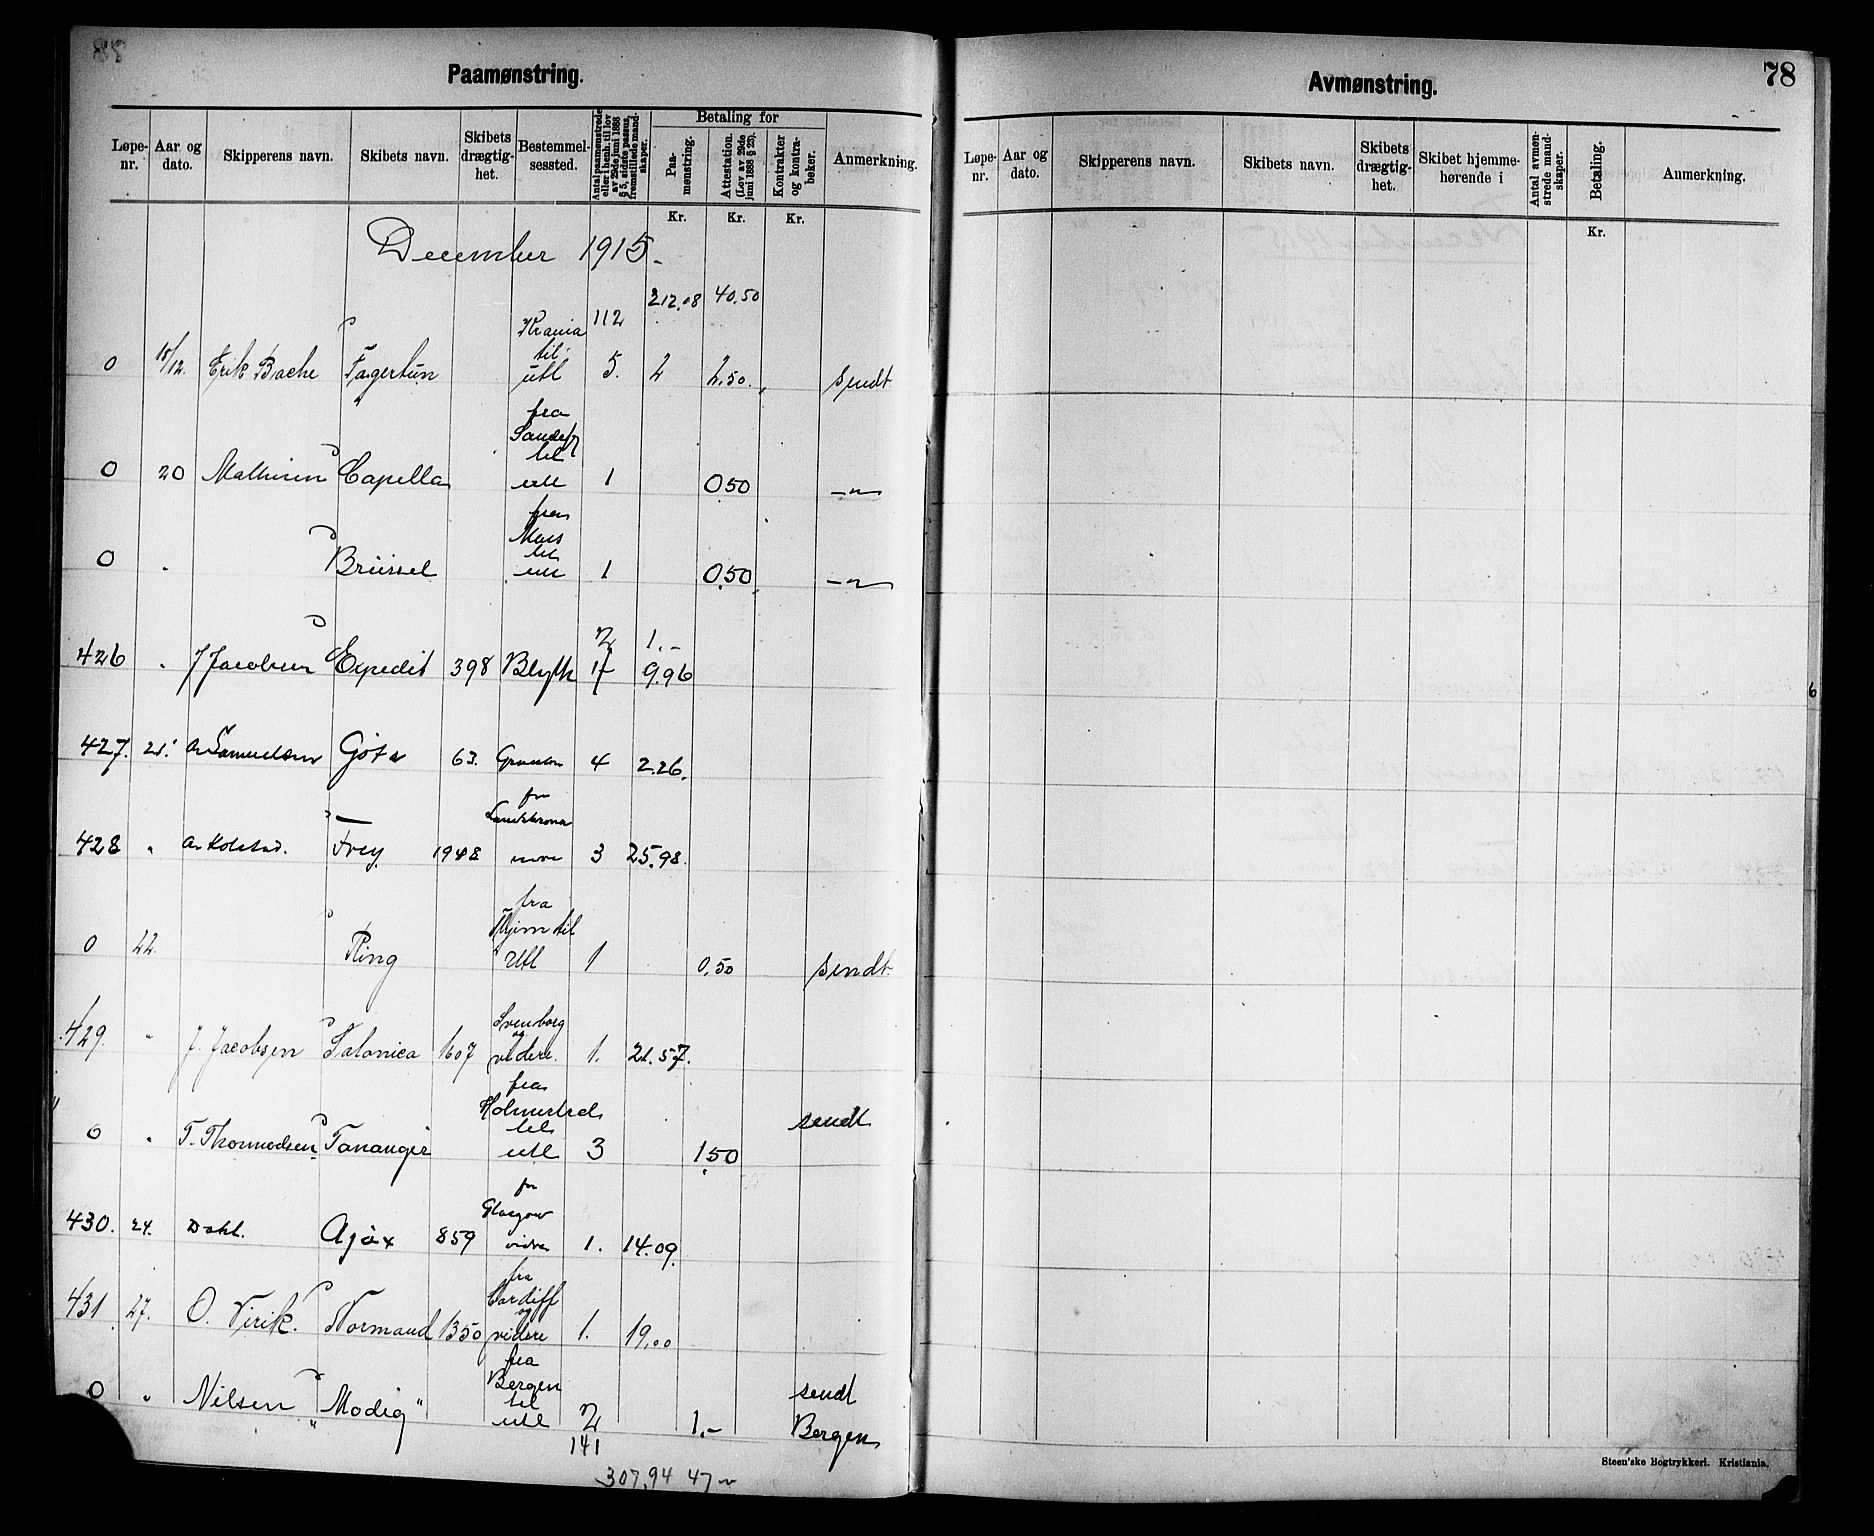 Paamønstring.
Løpe-nr. Aar og dato. Skipperens navn. Skibets navn. Skibets drægtig-het. Bestemmel-sessted. Antal paamønstrede eller i henh. til lov av 29de juni 1888 § 5, sidste passus, fremstillede mand-skaper. Betaling for Paa-mønstring. Attestation. (Lov av 29de juni 1888 § 23). Kontrakter og kontra-bøker. Anmerkning.
Kr. Kr. Kr.
December 1915.
112 212.08 40.50
Krania
til
0 15/12. Erik Bache Fagertun utl 5. 2 2,50. sendt
fra
Sandefj
til
0 20 Mathisen Capella utl 1 0,50 -"-
fra
Moss
til
0 . Brüssel utl 1 0,50 -"-
2 1.-
426 . J Jacobsen Expedit 398 Blyth 17 9.96
427. 21. Samuelsen Göta 63. 4 2.26.
fra
Landskrona
428 " Frey 1948 3 25.98.
fra
Thjem til
0 22. Ring Utl 1 0,50 sendt.
Svenborg
og
429. " J. Jacobsen Salonica 1607 videre. 1. 21.57.
fra
Holmestrad
til
sendt
0 " T. Thormodsen Tananger utl 3 1,50
fr
Glasgow
430. 24. Dahl. Ajax 859 videre 1. 14.09.
fra
Cardiff
og
431. 27. O. Virik. Normand 1350 videre 1. 19,00
fra
Bergen
til
sendt
0 " Nilsen "Modig" utl 2 1.- Bergen
141
307,94 47 -
Avmønstring.
78
Løpe-nr. Aar og dato. Skipperens navn. Skibets navn. Skibets drægtig-het. Skibet hjemme-hørende i Antal avmøn-strede mand-skaper. Betaling. Anmerkning.
Kr.
6
Steen'ske Bogtrykkeri. Kristiania.